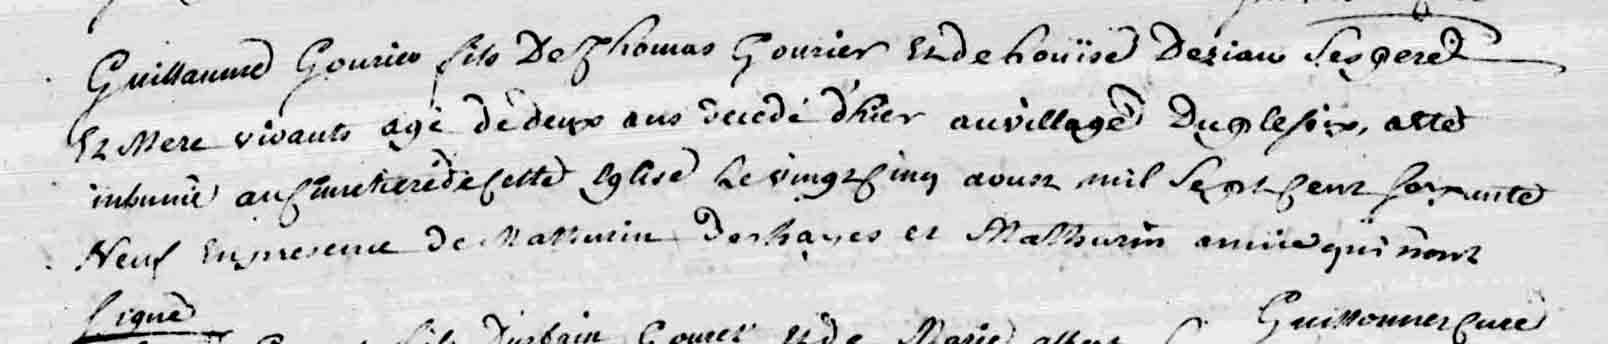 Guillaume Gourier fils De Thomas Gourier Et de Louise Deziau Ses pere
Et Mere vivants agé de deux ans decedé d'hier au village Du plesix, a ete
inhumé au Cimetiere de cette Eglise Le vingt Cinq aoust mil Sept Cent soixante
Neuf En presence de Mathurin Deshayes et Mathurin qui n'ont
Signé Guillonner Curé
fils D'urbain Gouret Et de Marie